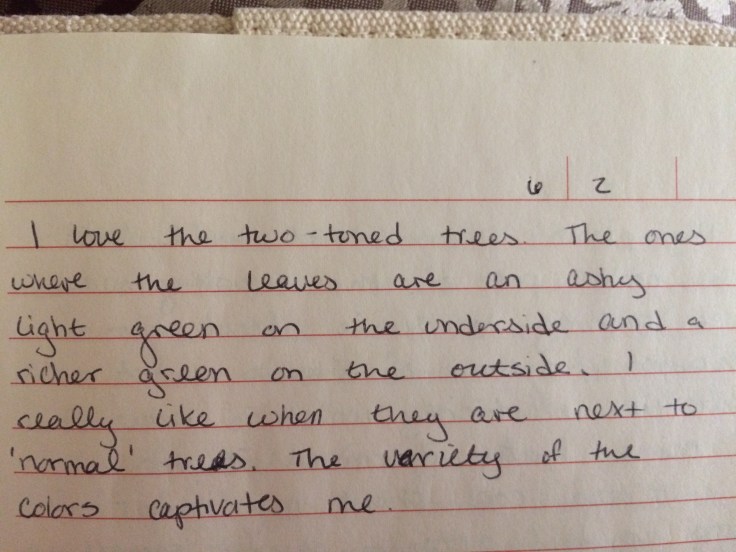 6 2
I love the two-toned trees. The ones
where the leaves are an ashy
light green on the underside and a
richer green on the outside. I
really like when they are next to
'normal' trees. The variety of the
colors captivates me.